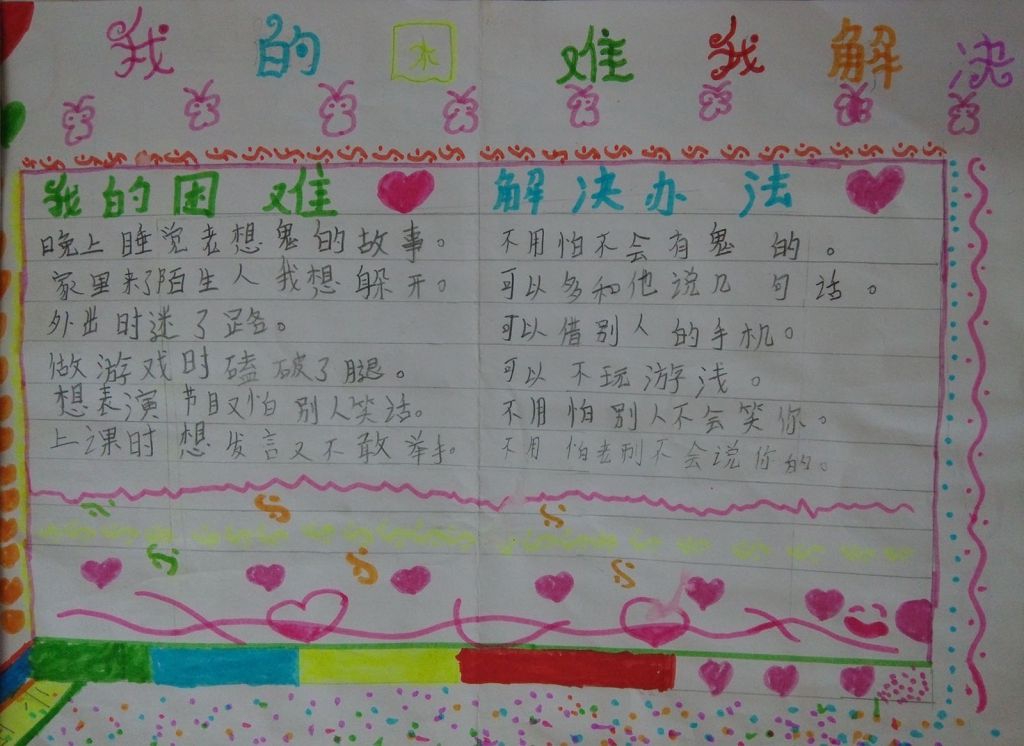 我的困难我解决
我的困难
晚上睡觉老想鬼的故事。
家里来了陌生人我想躲开。
外出时迷了路。
做游戏时磕破了腿。
想表演节目又怕别人笑话。
上课时想发言又不敢举手。
解决办法
不用怕不会有鬼的。
可以多和他说几句话。
可以借别人的手机。
可以不玩游浅。
不用怕别人不会笑你。
不用怕老刑不会说你的。